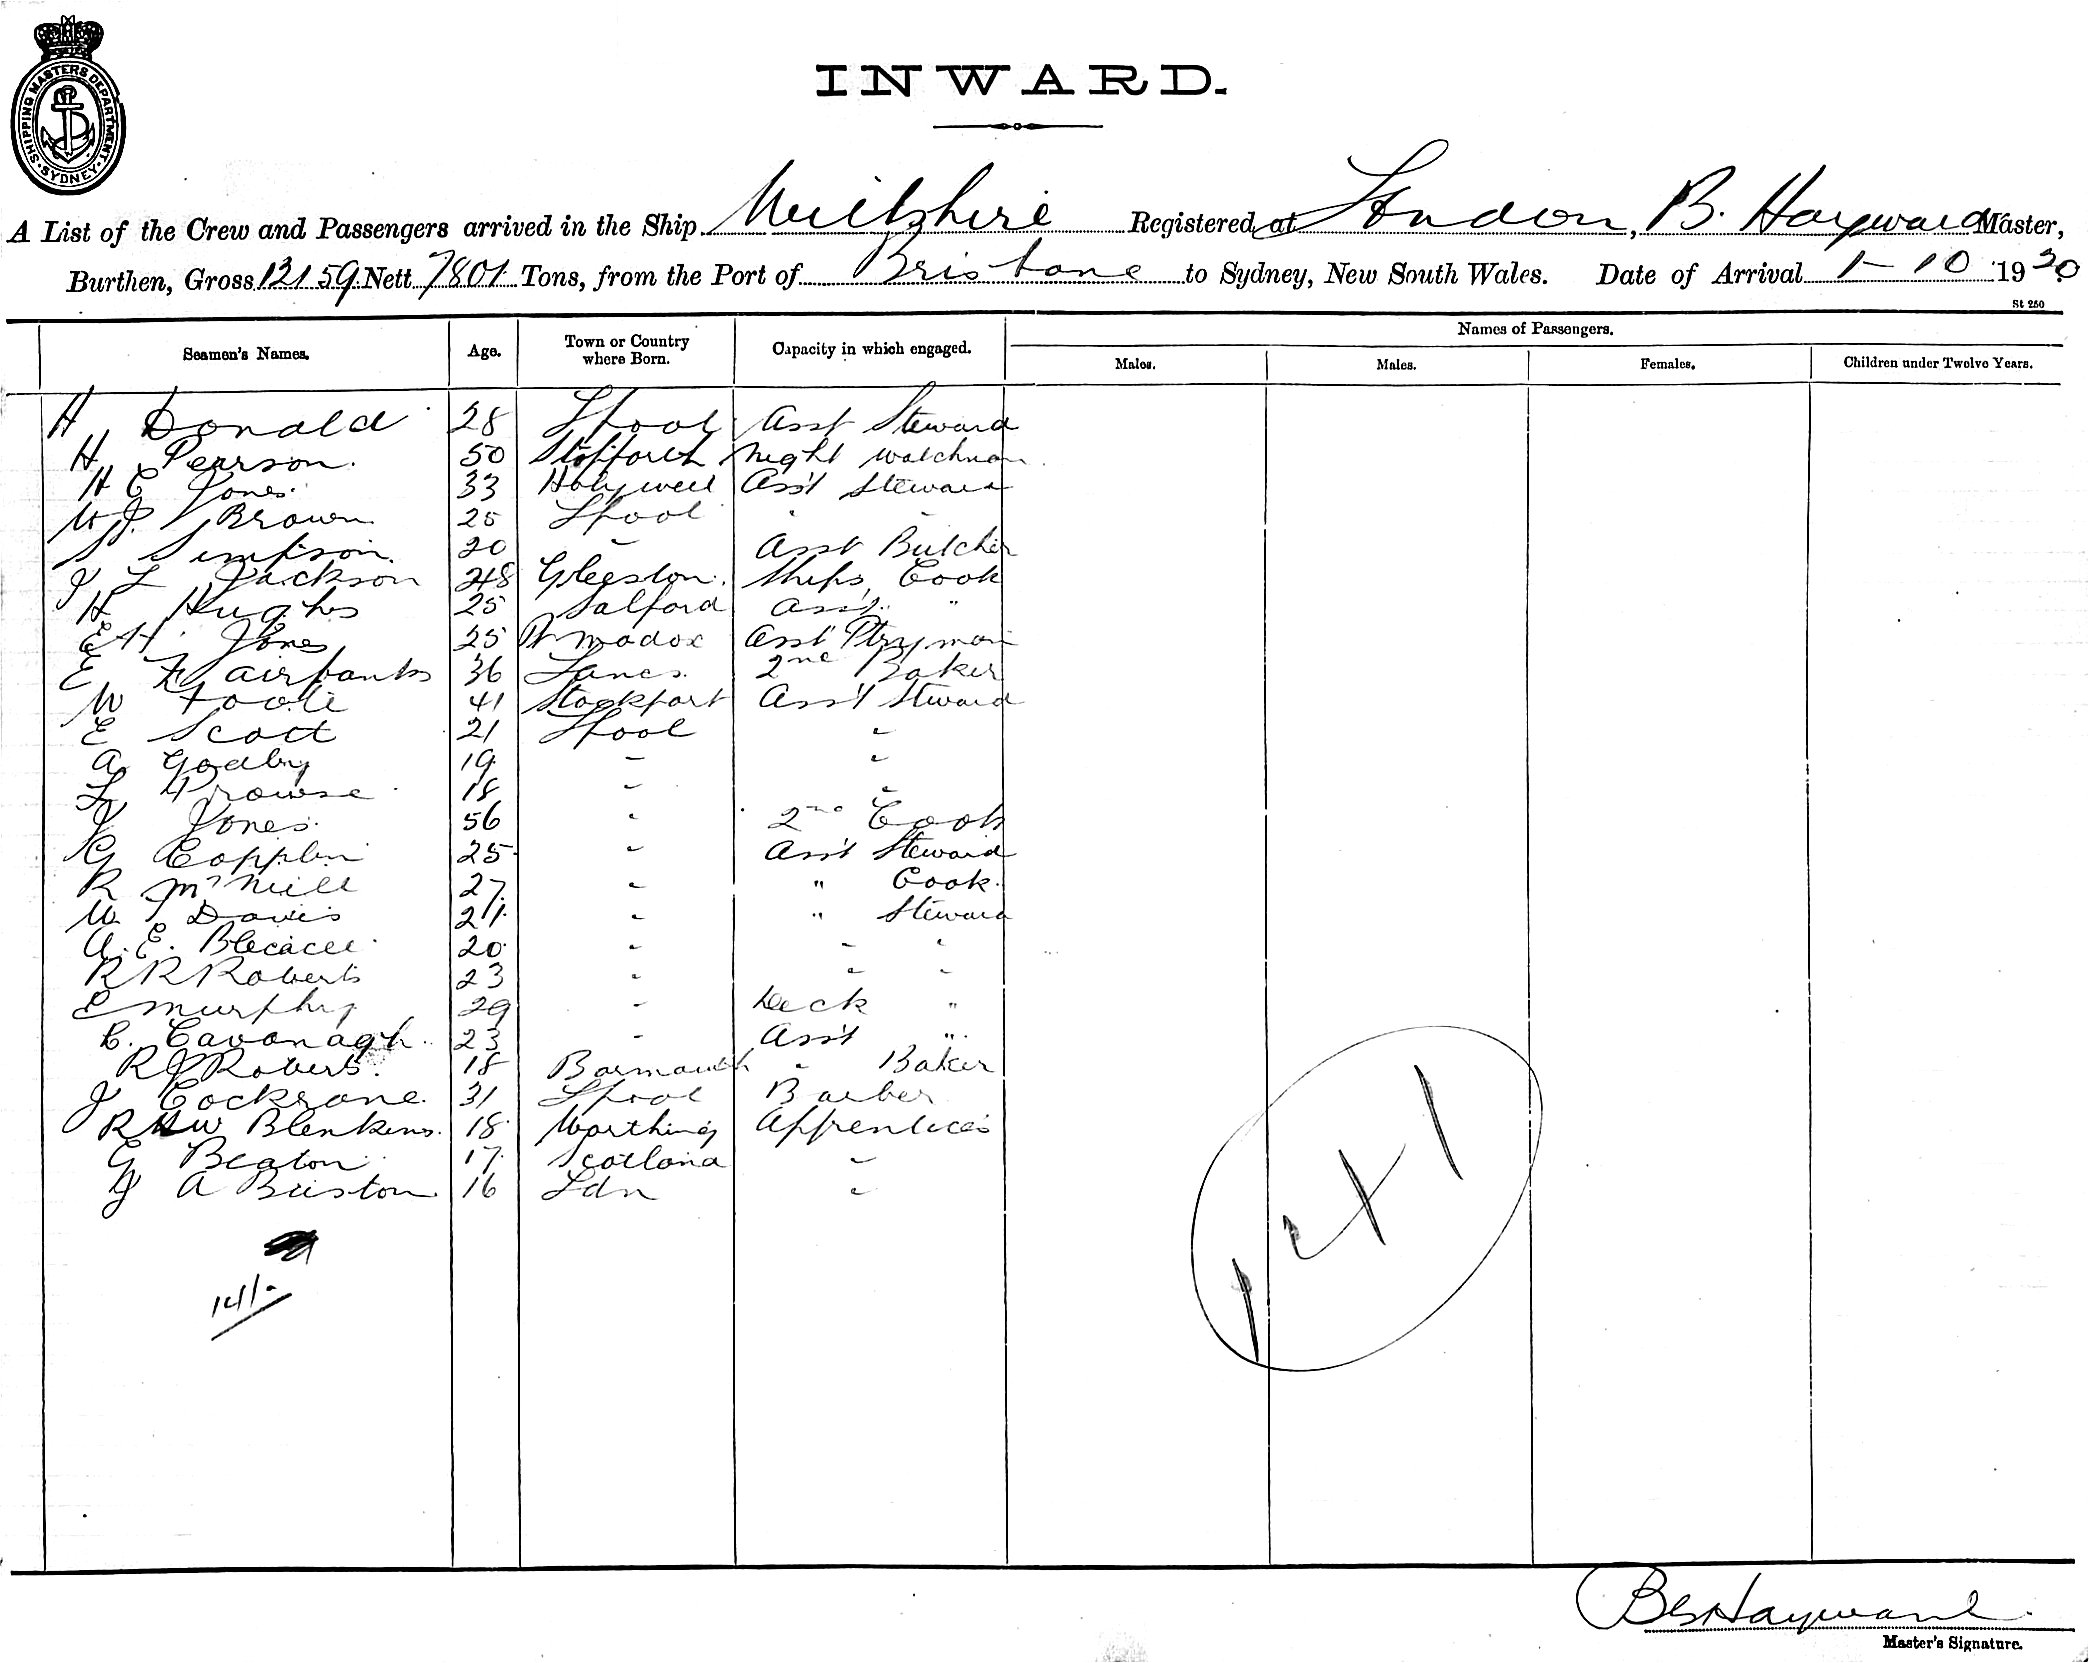 SHIPPING MASTERS DEPARTMENT. SYDNEY.
INWARD.
A List of the Crew and Passengers arrived in the Ship Wiltshire Registered at London, B. Hayward Master,
Burthen, Gross 12159 Nett 7801 Tons, from the Port of Brisbane to Sydney, New South Wales. Date of Arrival 1-10 1920
St 250
Seamen's Names. Age. Town or Country where Born. Capacity in which engaged. Names of Passengers.
Males. Males. Females. Children under Twelve Years.
H Donald 28 L'pool Asst Steward
H Pearson 50 Night Watchman
H E Jones 33 Holywell Ass't Steward
W J Brown 25 L'pool " "
S Simpson 20 " Asst Butcher
J L Jackson 48 Gleaston Ships Cook
H Hughes 25 Salford Ass't "
E H Jones 25 Pt Madox Asst Ptryman
E Fairbanks 36 Lancs 2nd Baker
W Foole 41 Stockport Ass't Steward
E Scott 21 L'pool "
A Godby 19 " "
L Prowse 18 " "
J Jones 56 " 2nd Cook
G Copplin 25 " Ass't Steward
R McNeill 27 " " Cook
W Davis 21 " " Steward
A. E. 20 " " "
R R Roberts 23 " " "
E Murphy 29 " Deck "
C. Cavanagh 23 " Ass't "
R J Roberts 18 Barmouth " Baker
J Cockrane 31 L'pool Barber
R H W Blenkins 18 Worthing Apprentices
G Beaton 17 Scotland "
J A Buston 16 Ldn "
141-
B Hayward
Master's Signature.